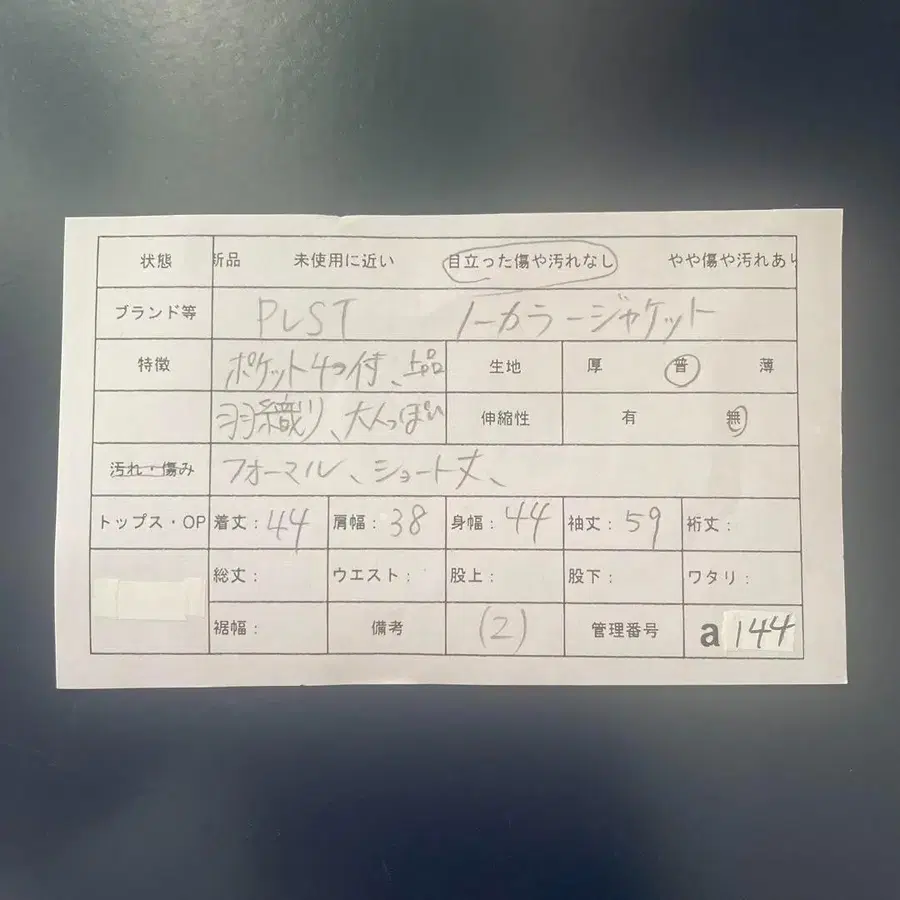 状態 新品 未使用に近い 目立った傷や汚れなし やや傷や汚れあり
ブランド等 PLST ノーカラージャケット
特徴 ポケット4つ付、上品 生地 厚 普 薄
羽織り、大人っぽい 伸縮性 有 無
汚れ・傷み フォーマル、ショート丈、
トップス・OP 着丈: 44 肩幅: 38 身幅: 44 袖丈: 59 裄丈:
総丈: ウエスト: 股上: 股下: ワタリ:
裾幅: 備考 (2) 管理番号 a 144